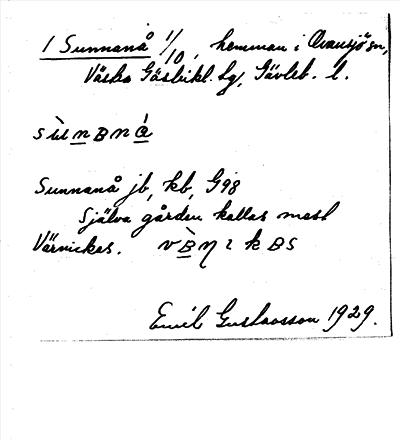 1 Sunnanå 1/10, hemman i Ovansjö sn,
Västra Gästrikl. hg, Gävleb. l.
sùnBnå
Sunnanå jb, kb, G98
Själva gården kallas mest
Värnickas. vBηιkBs
Emil Gustavsson 1929.